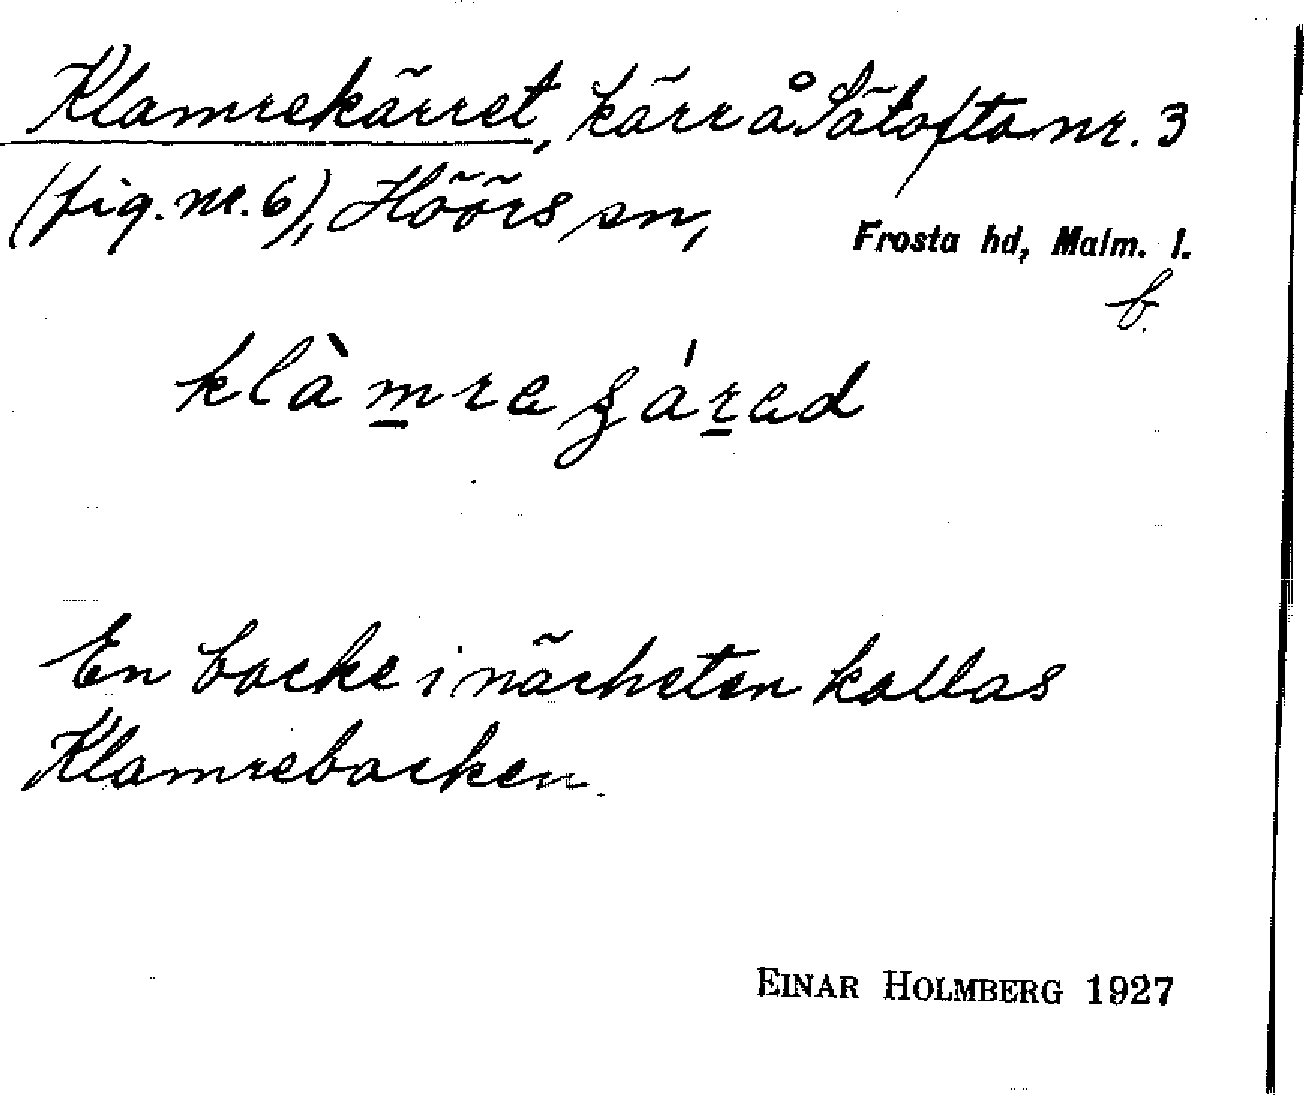 Klamrekärret, kärr å Sätofta nr. 3
(fig. nr. 6), Höörs sn, Frosta hd, Malm. l.
b.
klàmre
En backe i närheten kallas
Klamrebacken.
EINAR HOLMBERG 1927